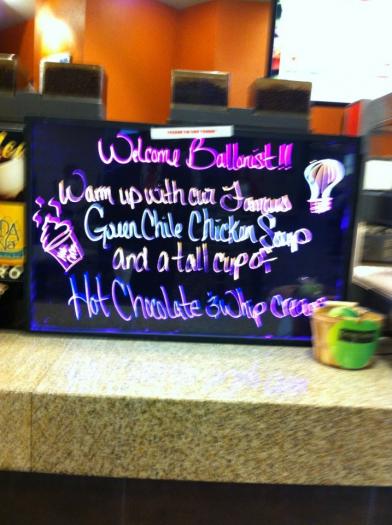 Welcome Balloonist!!!
Warm up with our Famous
Green Chile Chicken Soup
and a tall cup of
Hot Chocolate & Whip cream